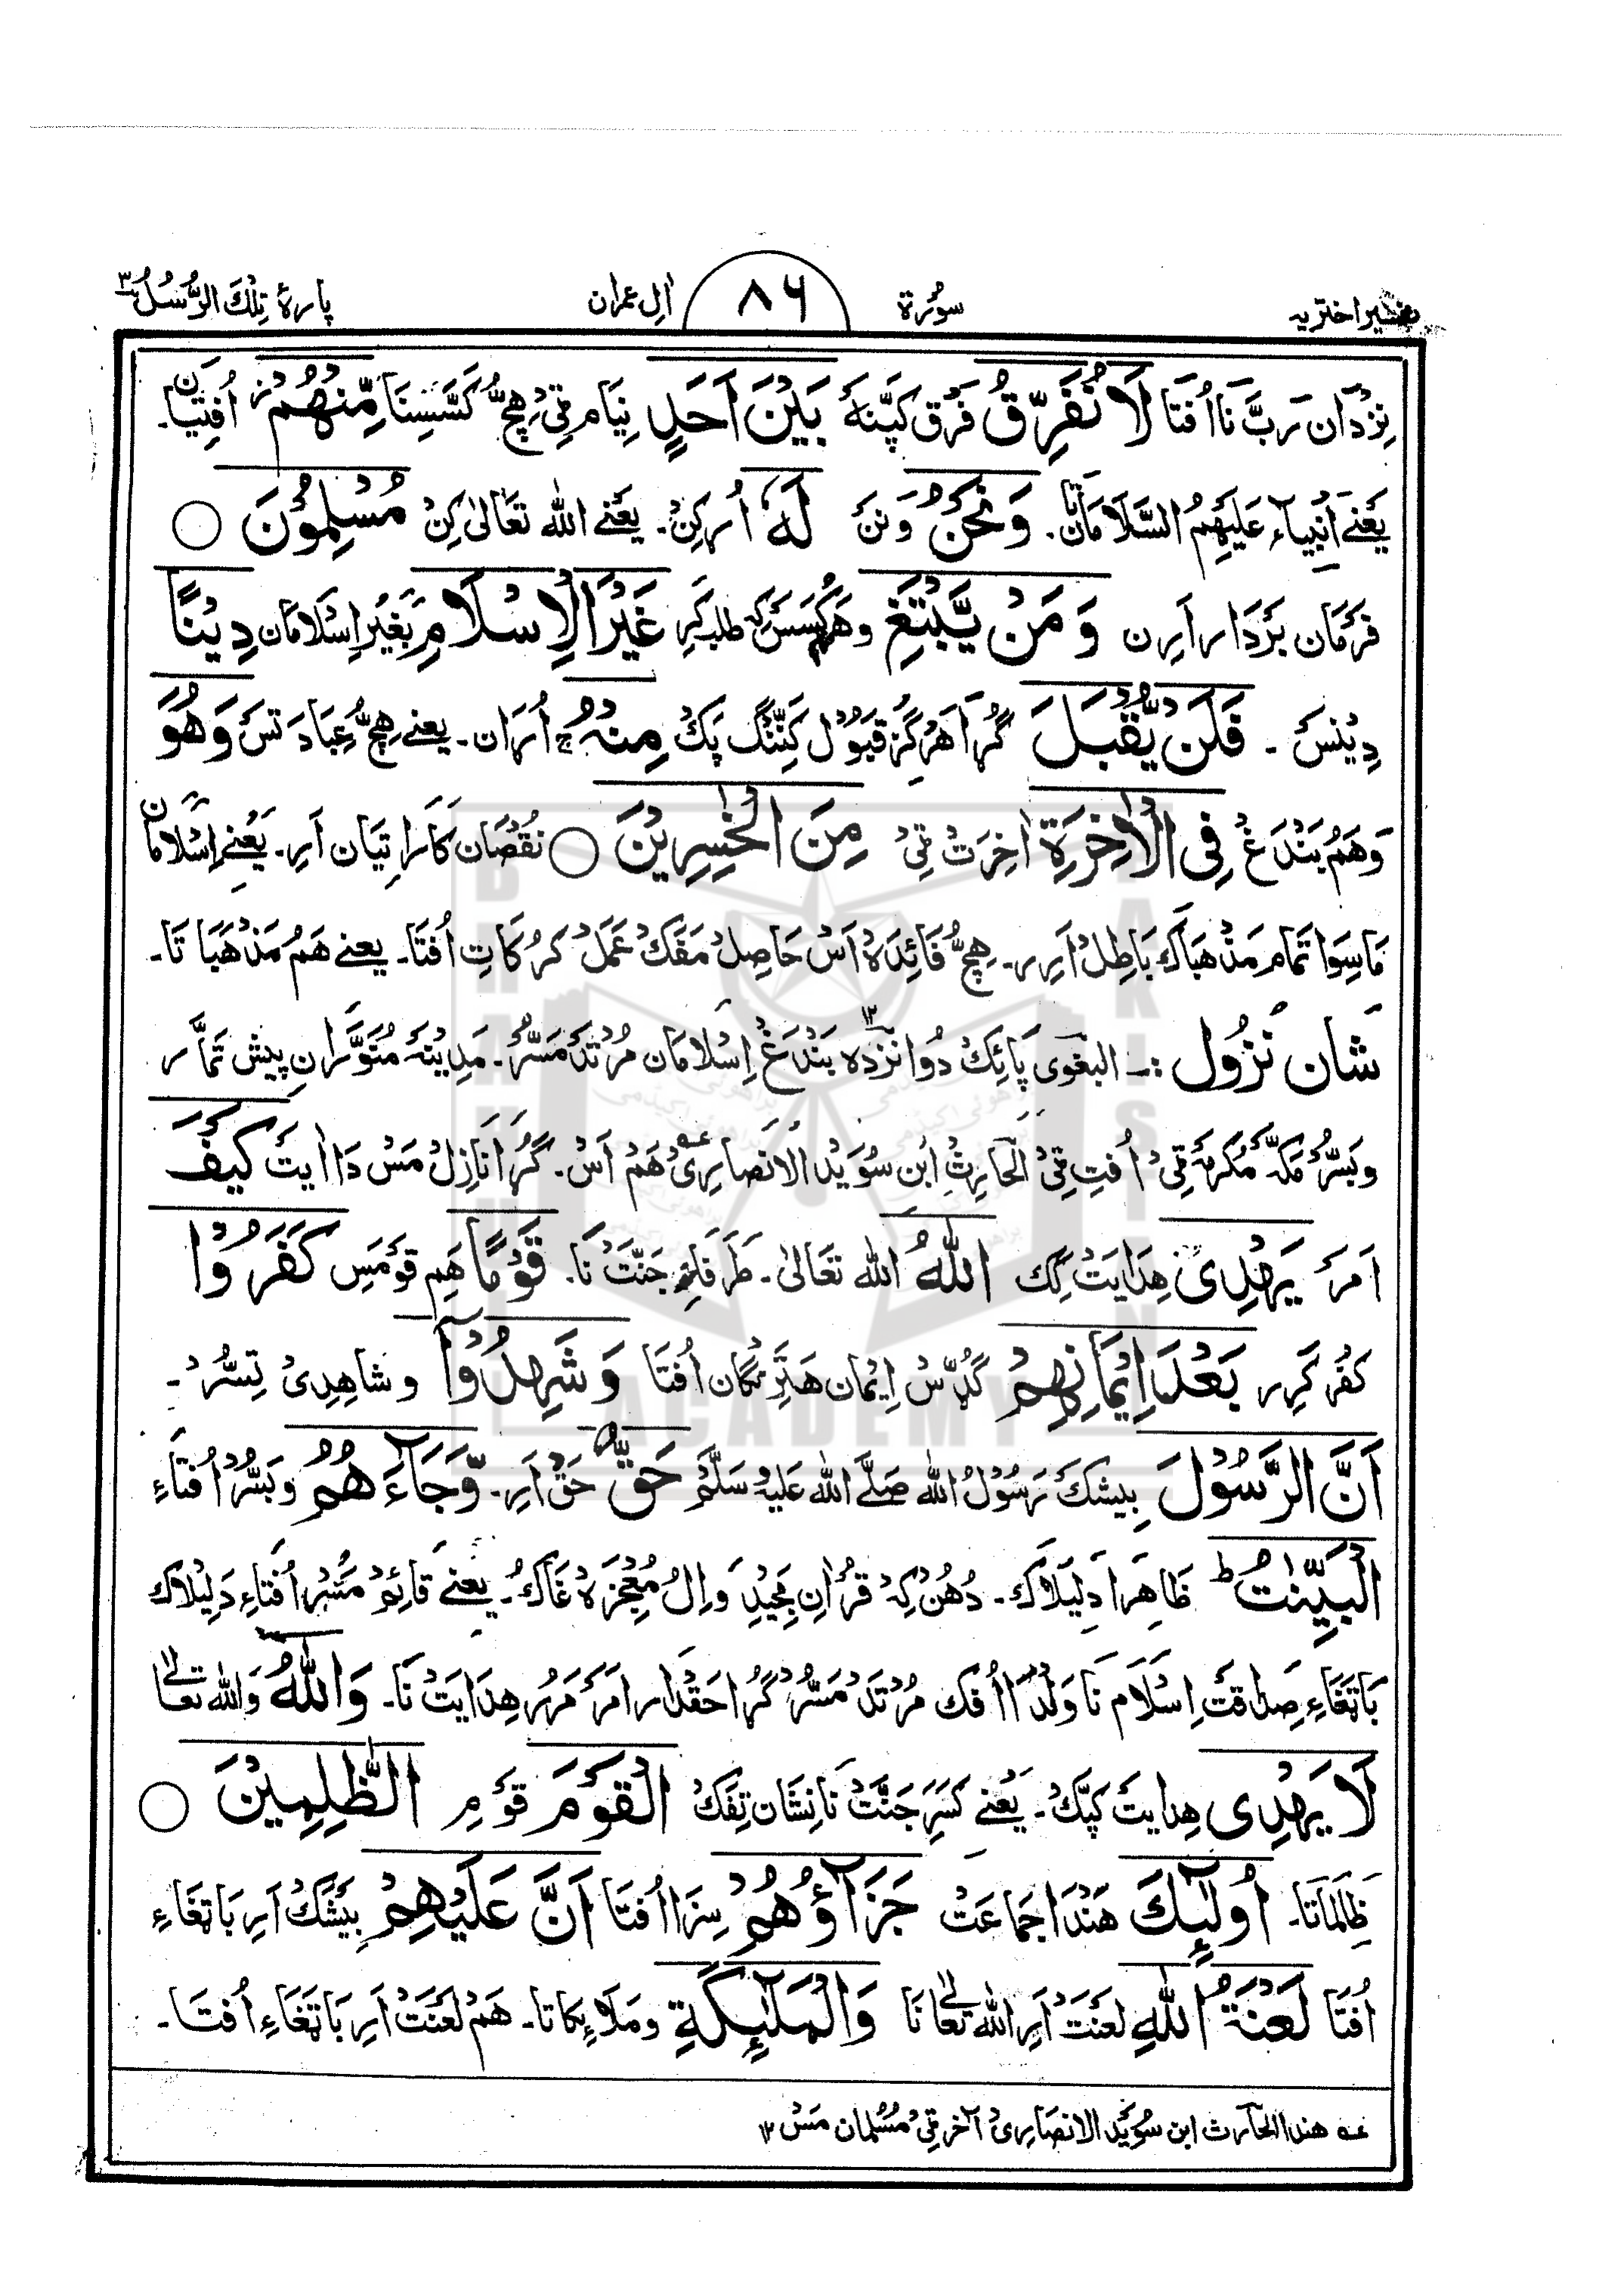 تفسیر اختریہ سُوْرَۃ ۸۶ اٰلِ عمران پارۂ تِلْکَ الرُّسُلُ ۳
نِزْدَان رَبَّ نَا اُفتَا لَا نُفَرِّقُ فَرْق کپَّنَہ بَیْنَ اَحَدٍ نِیَام ٹی ھِچُّ کَسَّسِنَا مِّنْھُمْ ز اُفِتِیَان۔
یَعْنے اَنْبِیَآءِ عَلَیْھِمُ السَّلَامَانا۔ وَنَحْنُ وَنَنَ لَہٗ اُرکِنْ۔ یعنے اللہ تَعَالیٰ کِنْ مُسْلِمُوْنَ ○
فَرْمَان بَرْدَار اَرِن وَمَنْ یَّبْتَغِ وھَرکَسَسْ کِہ طلب کَرِ غَیْرَ الْاِسْلَامِ بَغَیْرِ اِسْلَامَان دِیْنًا
دِیْنَسْ ۔ فَلَنْ یُّقْبَلَ گُرَا ھَرْگِز قَبُوْل کَنِّنْگ پَکْ مِنْہُ ج اُرَان۔ یعنے ھِچُّ عِبَادَتَسْ وَھُوَ
وَھَمُ بَنْدَغْ فِی الْاٰخِرَۃِ اٰخِرَتْ ٹِیْ مِنَ الْخٰسِرِیْنَ ○ نُقْصَان کَارَاتِیَان اَرِ۔ یَعْنے اِسْلَامَان
مَاسِوَا تَمَام مَذْھَبَاک بَاطِلْ اَرِر۔ ھِچُّ فَائِدَہْ اَسْ حَاصِلْ مَفَکْ عَمَلْ کَرُکَاتِ اُفتَا۔ یعنے ھَمُ مَذْھَبَاتَا۔
شَان نُزُول :۔ البغوی پَائِکْ دُوانزْدَہ ۱۲ بَنْدَغْ اِسْلَامَان مُرْتَدْ مَسُّرْ۔ مَدِیْنَہ مُنَوَّرَان پیش تَمَّار
وبَسُّرْ مَکَّہ مُکَرَّمَہ ٹِیْ اُفتِ ٹِیْ الحَارِثْ ابْن سُوَیْد الْاَنْصَارِیْ عـہ ھَمْ اَسْ۔ گُرَا نَازِلْ مَسْ دَا اٰیَتْ کَیْفَ
اَمَرَ یَھْدِی ھِدَایَتْ کِک اللّٰہُ اللہ تَعَالیٰ۔ طَرَفَاءِ جَنَّتْ نَا۔ قَوْمًا ھَمِ قَوْمَسِ کَفَرُوْا
کُفْر کَرِر بَعْدَ اِیْمَانِھِمْ گُدُّسْ اِیْمَان ھَتِّنْگَان اُفتَا وَشَھِدُوْٓا وشاھِدِیْ تِسُّرْ۔
اَنَّ الرَّسُوْلَ بِیْشَکْ رَسُوْلُ اللہ صَلَّے اللہ عَلَیْہِ سَلَّمَ حَقٌّ حَقْ اَرِ۔ وَّجَآءَھُمُ وَبَسُّرْ اُفتَاءِ
الْبَیِّنٰتُ ط ظَاھِرَا دَلِیْلَاک۔ دُھُنْکِہ قُرْاٰنِ مَجِیْدِ وَاِلُ مُعْجِزَہْ غَاکْ۔ یعنے قَائِمْ مَسُّر اُفتَاءِ دَلِیْلَاک
بَاتِغَاءِ صِدَاقَتْ اِسْلَام نَا وَلْدُ اَا اُفک مُرْتَدْ مَسُّرْ گُرَا حَقْدَار اَمَرَ مَرُر ھِدَایَتْ نَا۔ وَاللّٰہُ وَاللہ تعالےٰ
لَا یَھْدِی ھِدایَتْ کپَّکْ۔ یَعْنے کَسَرِ جَنَّتْ نَا نِشَان تِفَکْ الْقَوْمَ قَوْمِ الظّٰلِمِیْنَ ○
ظَالِمَاتَا۔ اُولٰٓئِکَ ھَنْدَا جَمَاعَتْ جَزَآؤُھُمْ سِزَا اُفتَا اَنَّ عَلَیْھِمْ بِیْشَکْ اَرِ بَاتِغَاءِ
اُفتَا لَعْنَۃَ اللّٰہِ لَعْنَتْ اَرِ اللہ تَعَالےٰ نَا وَالْمَلٰٓئِکَۃِ ومَلَائِکَاتا۔ ھَمْ لَعْنَتْ اَرِ بَاتِغَاءِ اُفتَا۔
عـہ ھندا الحَارِث ابن سُوَیْد الانصَارِیْ آخر ٹِیْ مُسُلمان مَسْ ۱۲
BRAHUI ACADEMY PAKISTAN